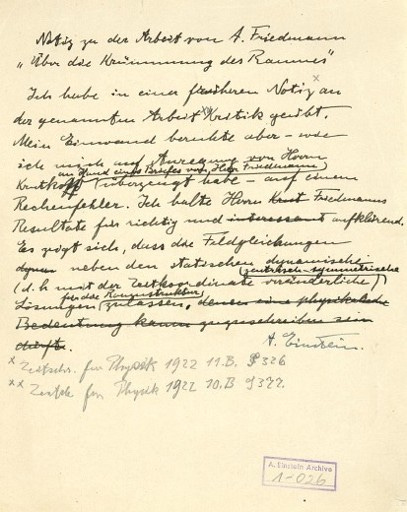 Notiz zu der Arbeit von A. Friedmann
„Über die Krümmung des Raumes"
Ich habe in einer früheren Notiz x an
der genannten Arbeit xx Kritik geübt.
Mein Einwand beruhte aber – wie
ich mich auf Anregung von Herrn
an Hand eines Briefes von Herrn Friedmann
Krutkoff überzeugt habe – auf einem
Rechenfehler. Ich halte Herrn Friedmanns
Resultate für richtig und interessant aufklärend.
Es zeigt sich, dass die Feldgleichungen
dyna neben den statischen dynamische
zentrisch-symmetrische
(d. h. mit der Zeitkoordinate veränderliche)
für die Raumstruktur
Lösungen zulassen, denen eine physikalische
Bedeutung kaum zuzuschreiben sein
dürfte.
A. Einstein.
x Zeitschr. für Physik 1922 11.B. S 326
xx Zeitsch. für Physik 1922 10.B S 377.
A. Einstein Archive
1-026